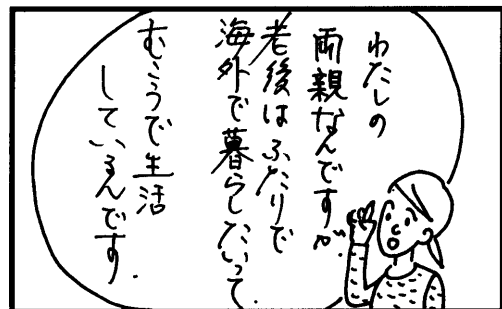 わたしの
両親なんですが、
老後はふたりで
海外で暮らしたいって、
むこうで生活
しているんです.